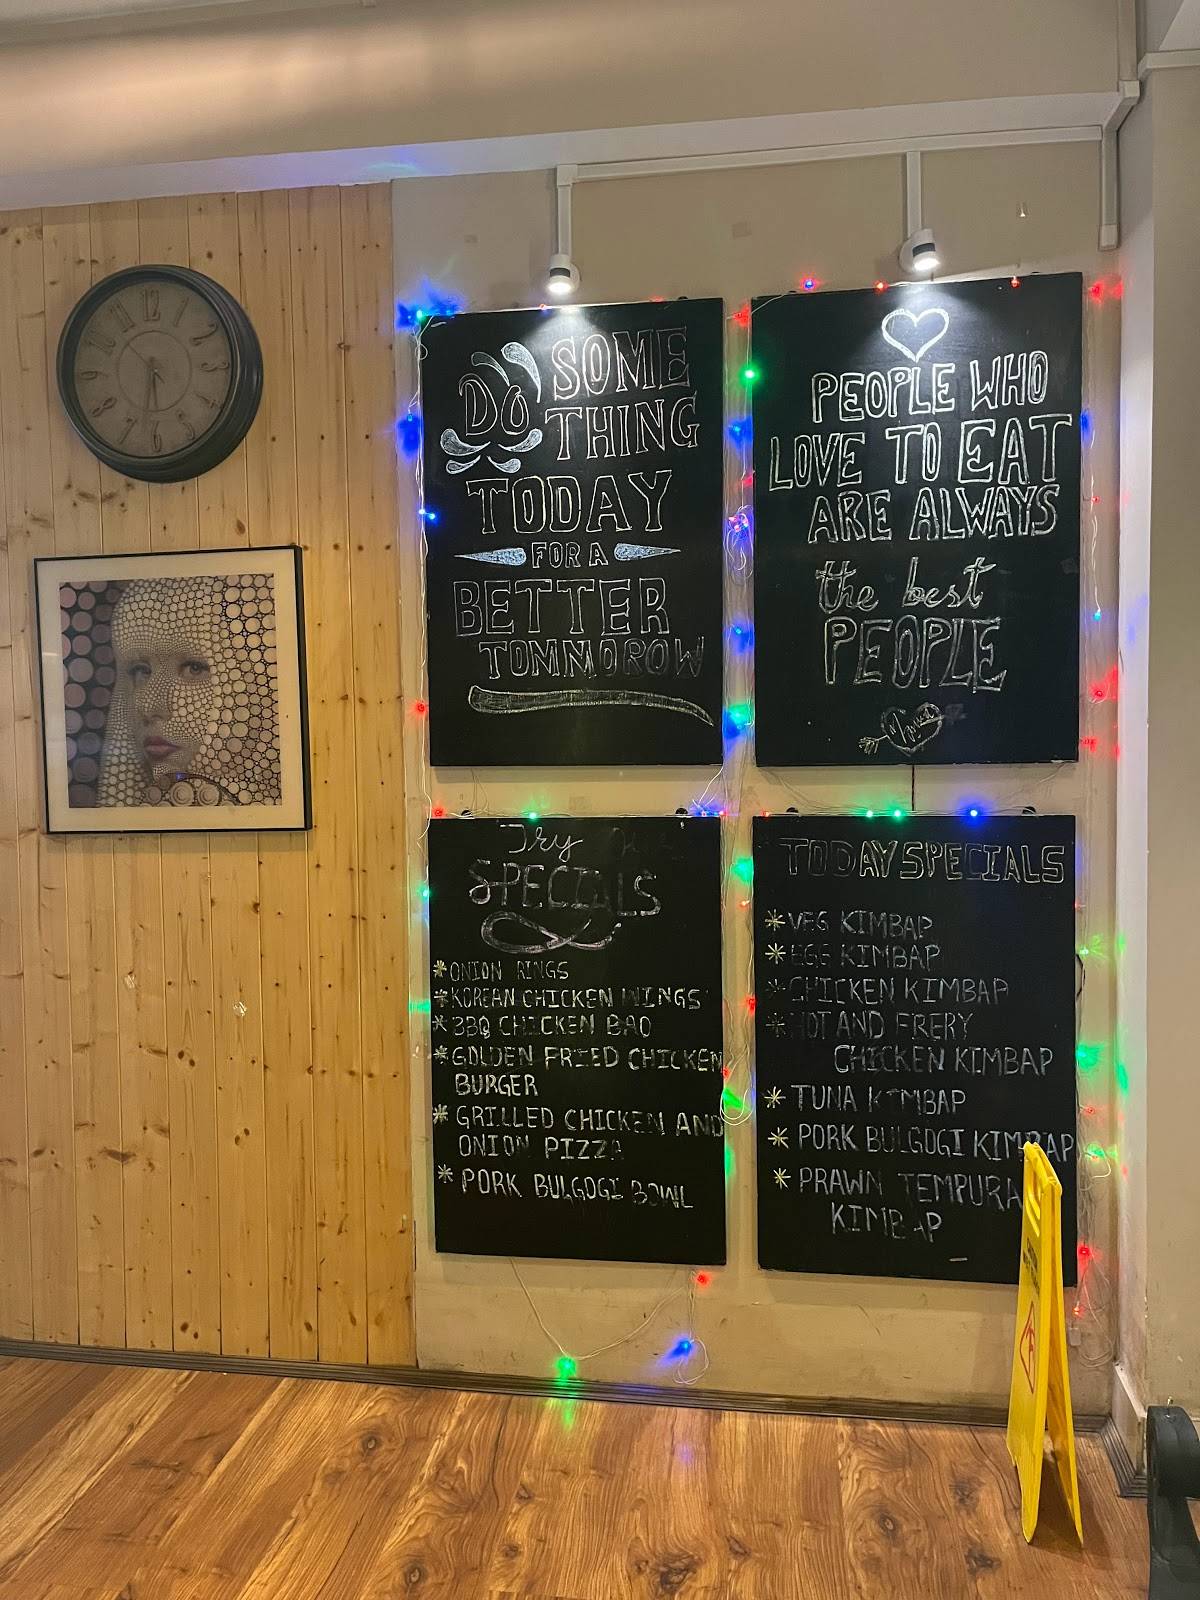 DO SOME
THING
TODAY
FOR A
BETTER
TOMMOROW
PEOPLE WHO
LOVE TO EAT
ARE ALWAYS
the best
PEOPLE
Try
SPECIALS
*ONION RINGS
*KOREAN CHICKEN WINGS
*BBQ CHICKEN BAO
*GOLDEN FRIED CHICKEN
BURGER
*GRILLED CHICKEN AND
ONION PIZZA
*PORK BULGOGI BOWL
TODAY SPECIALS
*VEG KIMBAP
*EGG KIMBAP
*CHICKEN KIMBAP
*HOT AND FRERY
CHICKEN KIMBAP
*TUNA KIMBAP
*PORK BULGOGI KIMBAP
*PRAWN TEMPURA
KIMBAP
11 12 1 2 3 4 5 6 7 8 9 10